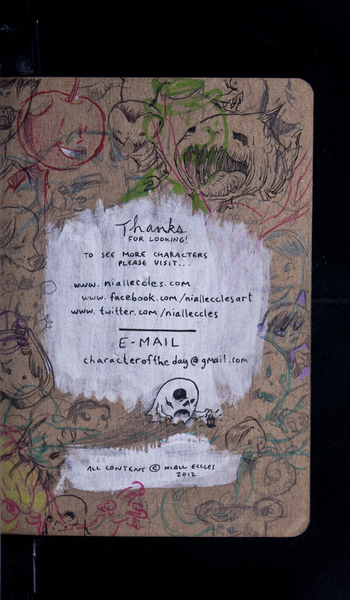 Thanks
FOR LOOKING!
TO SEE MORE CHARACTERS
PLEASE VISIT...
www.niallecoles.com
www.facebook.com/niallecclesart
www.twitter.com/nialleccles
E-MAIL
characteroftheday@gmail.com
ALL CONTENT © NIALL ECCLES
2012